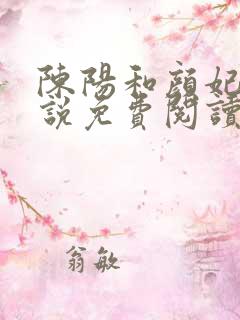 陳陽和顏妃
說免費閱讀
翁敏